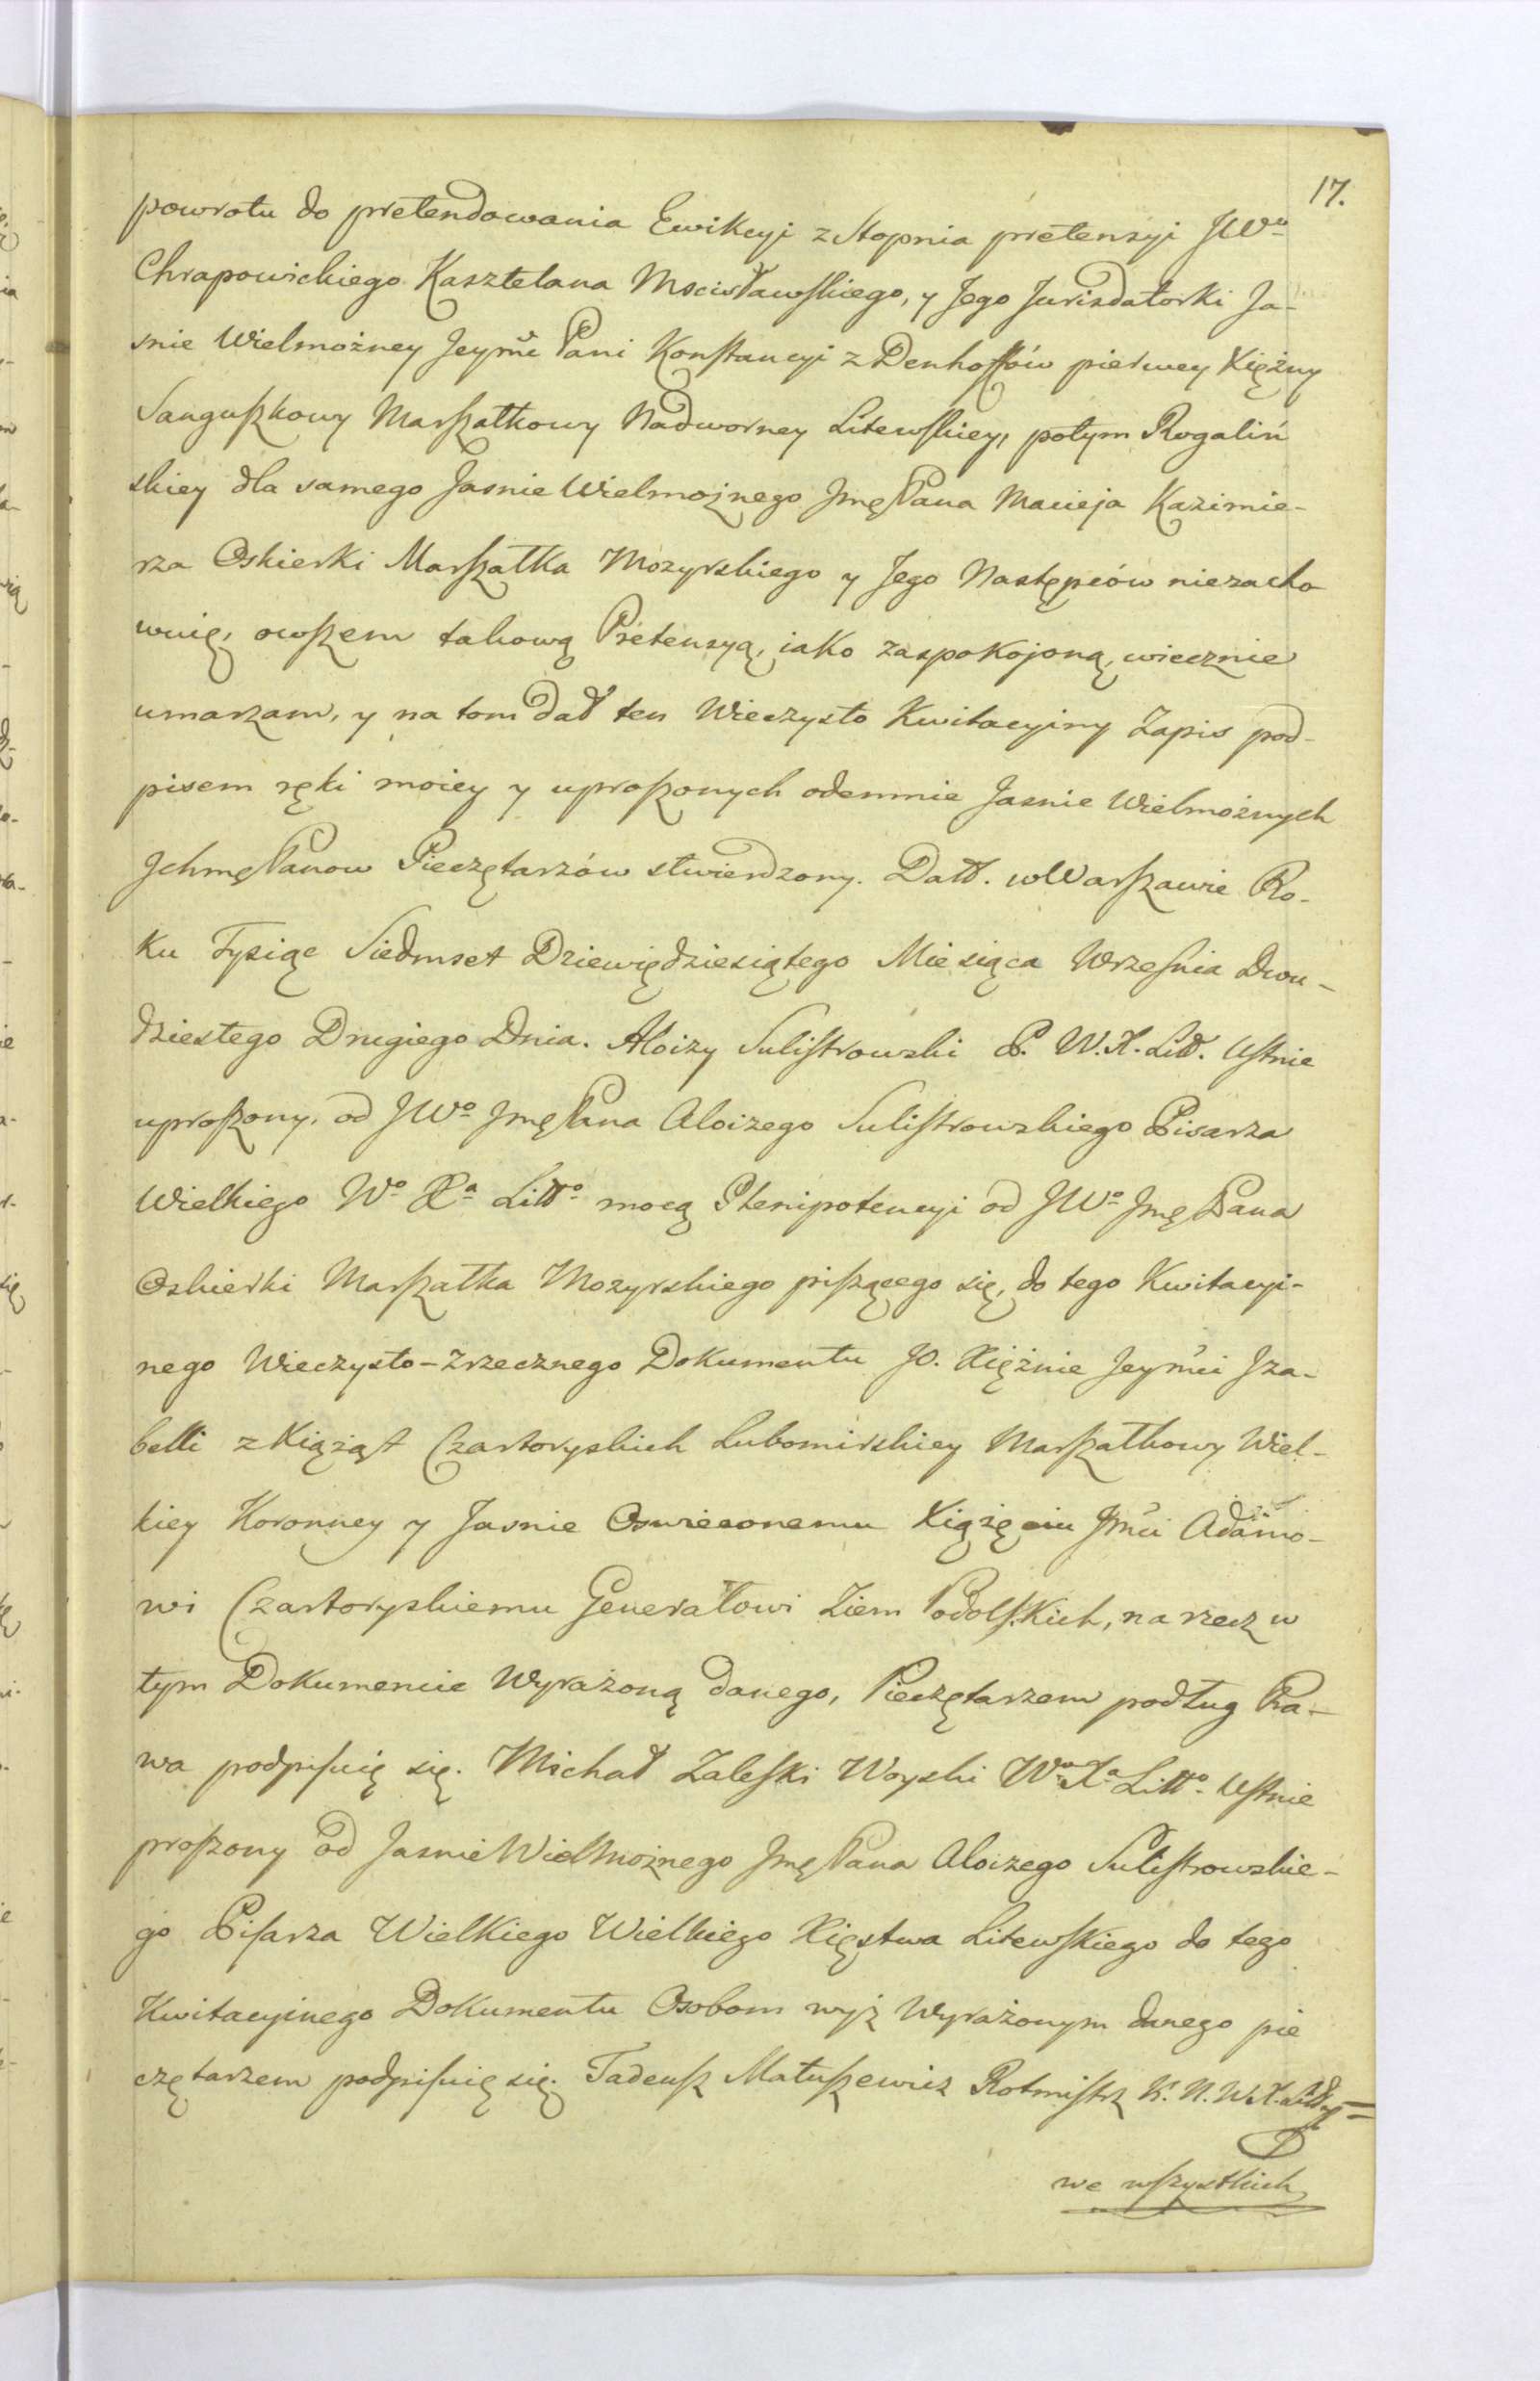 17.
powrotu do pretendowania Ewikcyi z Stopnia pretensyi JWo
Chrapowickiego Kasztelana Mscisławskiego, y Jego Jurisdatorki Ja-
snie Wielmożney Jeymci Pani Konstancyi z Denhoffów pierwey Xiężny
Sanguszkowy Marszałkowy Nadworney Litewskiey, potym Rogaliń
skiey dla samego Jasnie Wielmożnego Jmę Pana Macieja Kazimie-
rza Oskierki Marszałka Mozyrskiego y Jego Następców niezacho
wuię, owszem takową Pretensyą, iako zaspokojoną, wiecznie
umarzam, y na tom dał ten Wieczysto Kwitacyiny Zapis pod-
pisem ręki moiey y uproszonych odemnie Jasnie Wielmożnych
Jchmę Panow Pieczętarzów stwierdzony. Datt. w Warszawie Ro-
ku Tysiąc Siedmset Dziewiędziesiątego Miesiąca Września Dwu-
dziestego Drugiego Dnia. Aloizy Sulistrowski P. W. X. Litt. Ustnie
uproszony, od JWo Jmę Pana Aloizego Sulistrowskiego Pisarza
Wielkiego Wo Xa Litto mocą Plenipotencyi od JWo Jmę Pana
Oskierki Marszałka Mozyrskiego piszącego się, do tego Kwitacyi-
nego Wieczysto-Zrzecznego Dokumentu JO. Xiężnie Jeymci Jza-
belli z Xiążąt Czartoryskich Lubomirskiey Marszałkowy Wiel-
kiey Koronney y Jasnie Oswieconemu Xiążęciu Jmci Adamo-
wi Czartoryskiemu Generałowi Ziem Podolskich, na rzecz w
tym Dokumencie Wyrażoną danego, Pieczętarzem podług Pra-
wa podpisuię się. Michał Zaleski Woyski Wo Xa Litto Ustnie
proszony od Jasnie Wielmożnego Jmę Pana Aloizego Sulistrowskie-
go Pisarza Wielkiego Wielkiego Xięstwa Litewskiego do tego
Kwitacyinego Dokumentu Osobom wyż Wyrażonym danego pie
czętarzem podpisuię się. Tadeusz Matuszewicz Rotmistrz K. N. W. X. Litt. =
we wszystkich